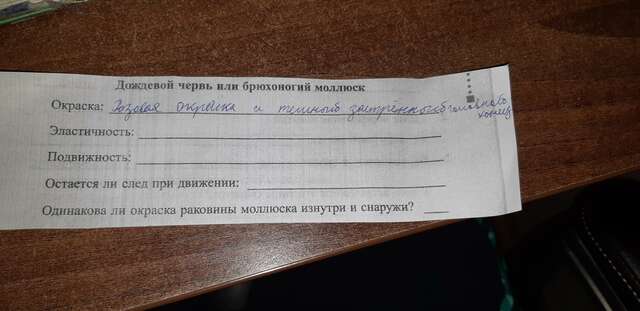 Дождевой червь или брюхоногий моллюск
Окраска: Розовая окраска и темный заострённый головного
конец
Эластичность:
Подвижность:
Остается ли след при движении:
Одинакова ли окраска раковины моллюска изнутри и снаружи?